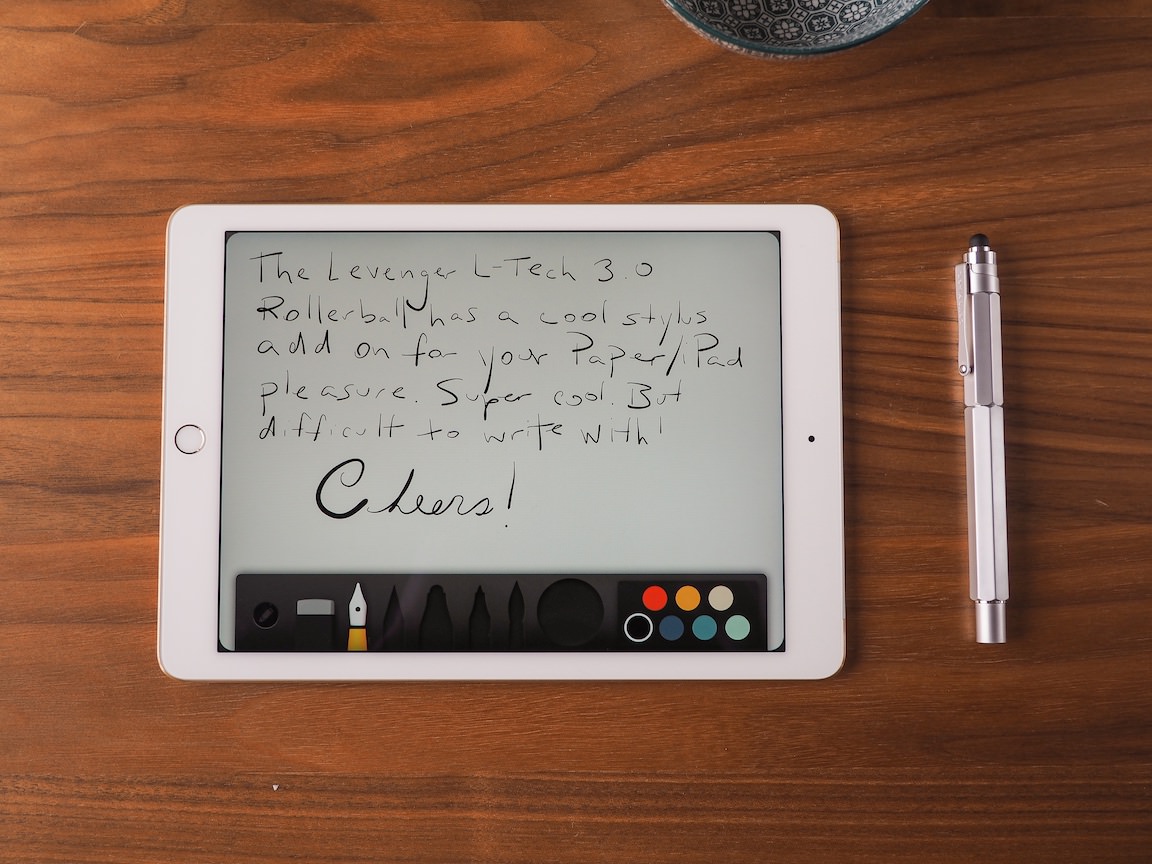 The Levenger L-Tech 3.0
Rollerball has a cool stylus
add on for your Paper/iPad
pleasure. Super cool. But
difficult to write with!
Cheers!